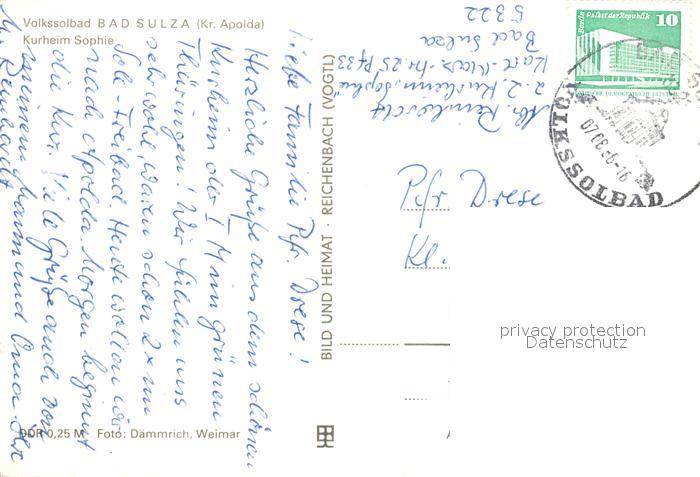 Volkssolbad BAD SULZA (Kr. Apolda)
Kurheim Sophie
Liebe Familie Pfr. Drese!
Herzliche Grüße aus dem schönen
Kurheim der I M im grünen
Thüringen! Wir fühlen uns
sehr wohl, waren schon 2x im
Sole-Freibad. Heute wollen wir
nach Apolda. Morgen beginnt
die Kur. Viele Grüße auch von
meinem Mann und Oma. Ihre
M. Reinhardt
DDR 0,25 M Foto: Dämmrich, Weimar
BILD UND HEIMAT · REICHENBACH (VOGTL)
Abs. Reinhardt
z. Z. Kurheim "Sophie"
Karl-Marx-Str. 25 Pf 33
Bad Sulza
5322
Berlin, Palast der Republik
10
VOLKSSOLBAD
Pfr Drese
Kl.
privacy protection
Datenschutz